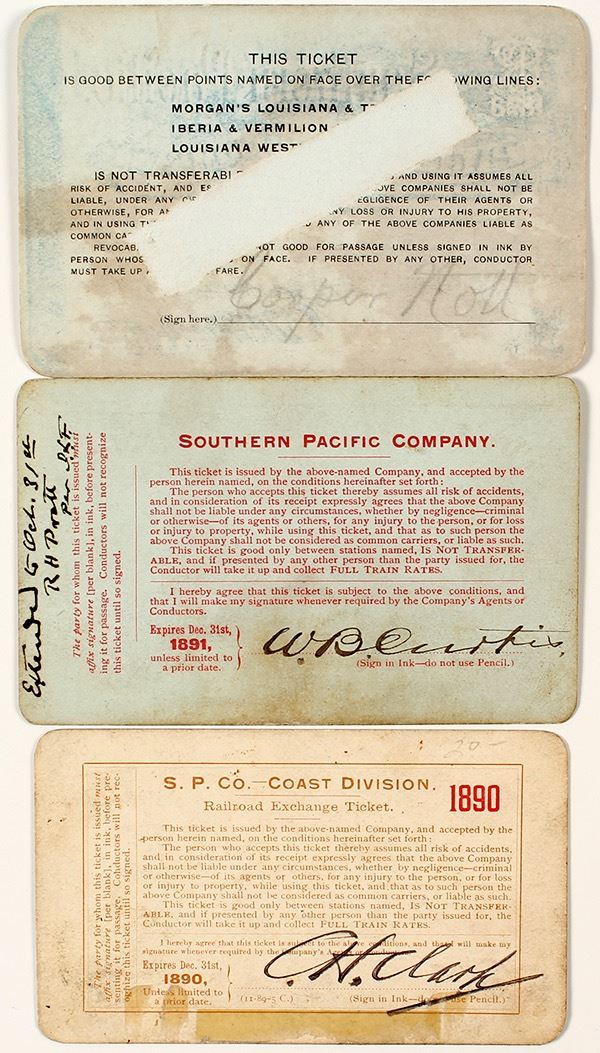 THIS TICKET
IS GOOD BETWEEN POINTS NAMED ON FACE OVER THE FOLLOWING LINES:
MORGAN'S LOUISIANA & T
IBERIA & VERMILION
LOUISIANA WEST
IS NOT TRANSFERABLE AND USING IT ASSUMES ALL
RISK OF ACCIDENT, AND COMPANIES SHALL NOT BE
LIABLE, UNDER ANY NEGLIGENCE OF THEIR AGENTS OR
OTHERWISE, FOR ANY LOSS OR INJURY TO HIS PROPERTY,
AND IN USING ANY OF THE ABOVE COMPANIES LIABLE AS
COMMON
REVOCAB NOT GOOD FOR PASSAGE UNLESS SIGNED IN INK BY
PERSON WHOS ON FACE. IF PRESENTED BY ANY OTHER, CONDUCTOR
MUST TAKE UP FARE.
Cooper
(Sign here.)
Extended to Oct. 31st
R H Pratt
per
The party for whom this ticket is issued must
affix signature [per blank], in ink, before present-
ing it for passage. Conductors will not recognize
this ticket until so signed.
SOUTHERN PACIFIC COMPANY.
This ticket is issued by the above-named Company, and accepted by the
person herein named, on the conditions hereinafter set forth:
The person who accepts this ticket thereby assumes all risk of accidents,
and in consideration of its receipt expressly agrees that the above Company
shall not be liable under any circumstances, whether by negligence—criminal
or otherwise—of its agents or others, for any injury to the person, or for loss
or injury to property, while using this ticket, and that as to such person the
above Company shall not be considered as common carriers, or liable as such.
This ticket is good only between stations named, IS NOT TRANSFER-
ABLE, and if presented by any other person than the party issued for, the
Conductor will take it up and collect FULL TRAIN RATES.
I hereby agree that this ticket is subject to the above conditions, and
that I will make my signature whenever required by the Company's Agents or
Conductors.
Expires Dec. 31st,
1891,
unless limited to
a prior date.
W. B. Curtis.
(Sign in Ink—do not use Pencil.)
20-
The party for whom this ticket is issued must
affix signature [per blank], in ink, before pre-
senting it for passage. Conductors will not rec-
ognize this ticket until so signed.
S. P. CO.—COAST DIVISION.
1890
Railroad Exchange Ticket.
This ticket is issued by the above-named Company, and accepted by the
person herein named, on the conditions hereinafter set forth:
The person who accepts this ticket thereby assumes all risk of accidents,
and in consideration of its receipt expressly agrees that the above Company
shall not be liable under any circumstances, whether by negligence—criminal
or otherwise—of its agents or others, for any injury to the person, or for loss
or injury to property, while using this ticket, and that as to such person the
above Company shall not be considered as common carriers, or liable as such.
This ticket is good only between stations named, IS NOT TRANSFER-
ABLE, and if presented by any other person than the party issued for, the
Conductor will take it up and collect FULL TRAIN RATES.
I hereby agree that this ticket is subject to the above conditions, and that I will make my
signature whenever required by the Company's Agents or Conductors.
Expires Dec. 31st,
1890,
Unless limited to
a prior date.
C. H. Clark
(11-89-5 C.)
(Sign in Ink—do not use Pencil.)